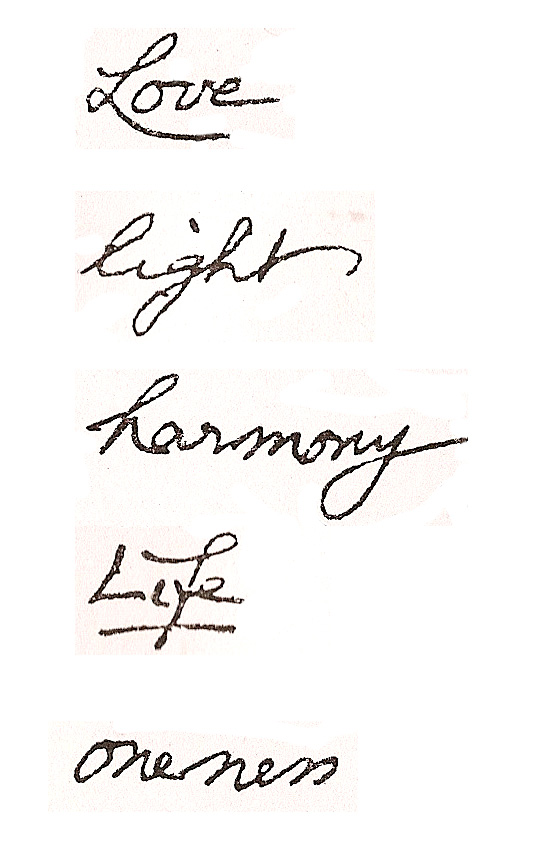 Love
light
harmony
Life
oneness